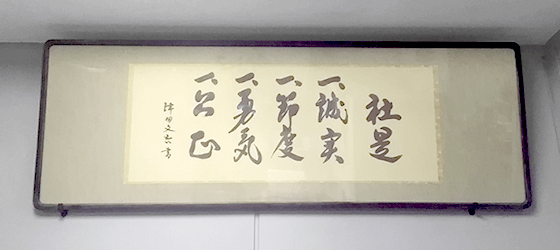 社是
一、誠実
一、節度
一、勇気
一、公正
津田文吾書